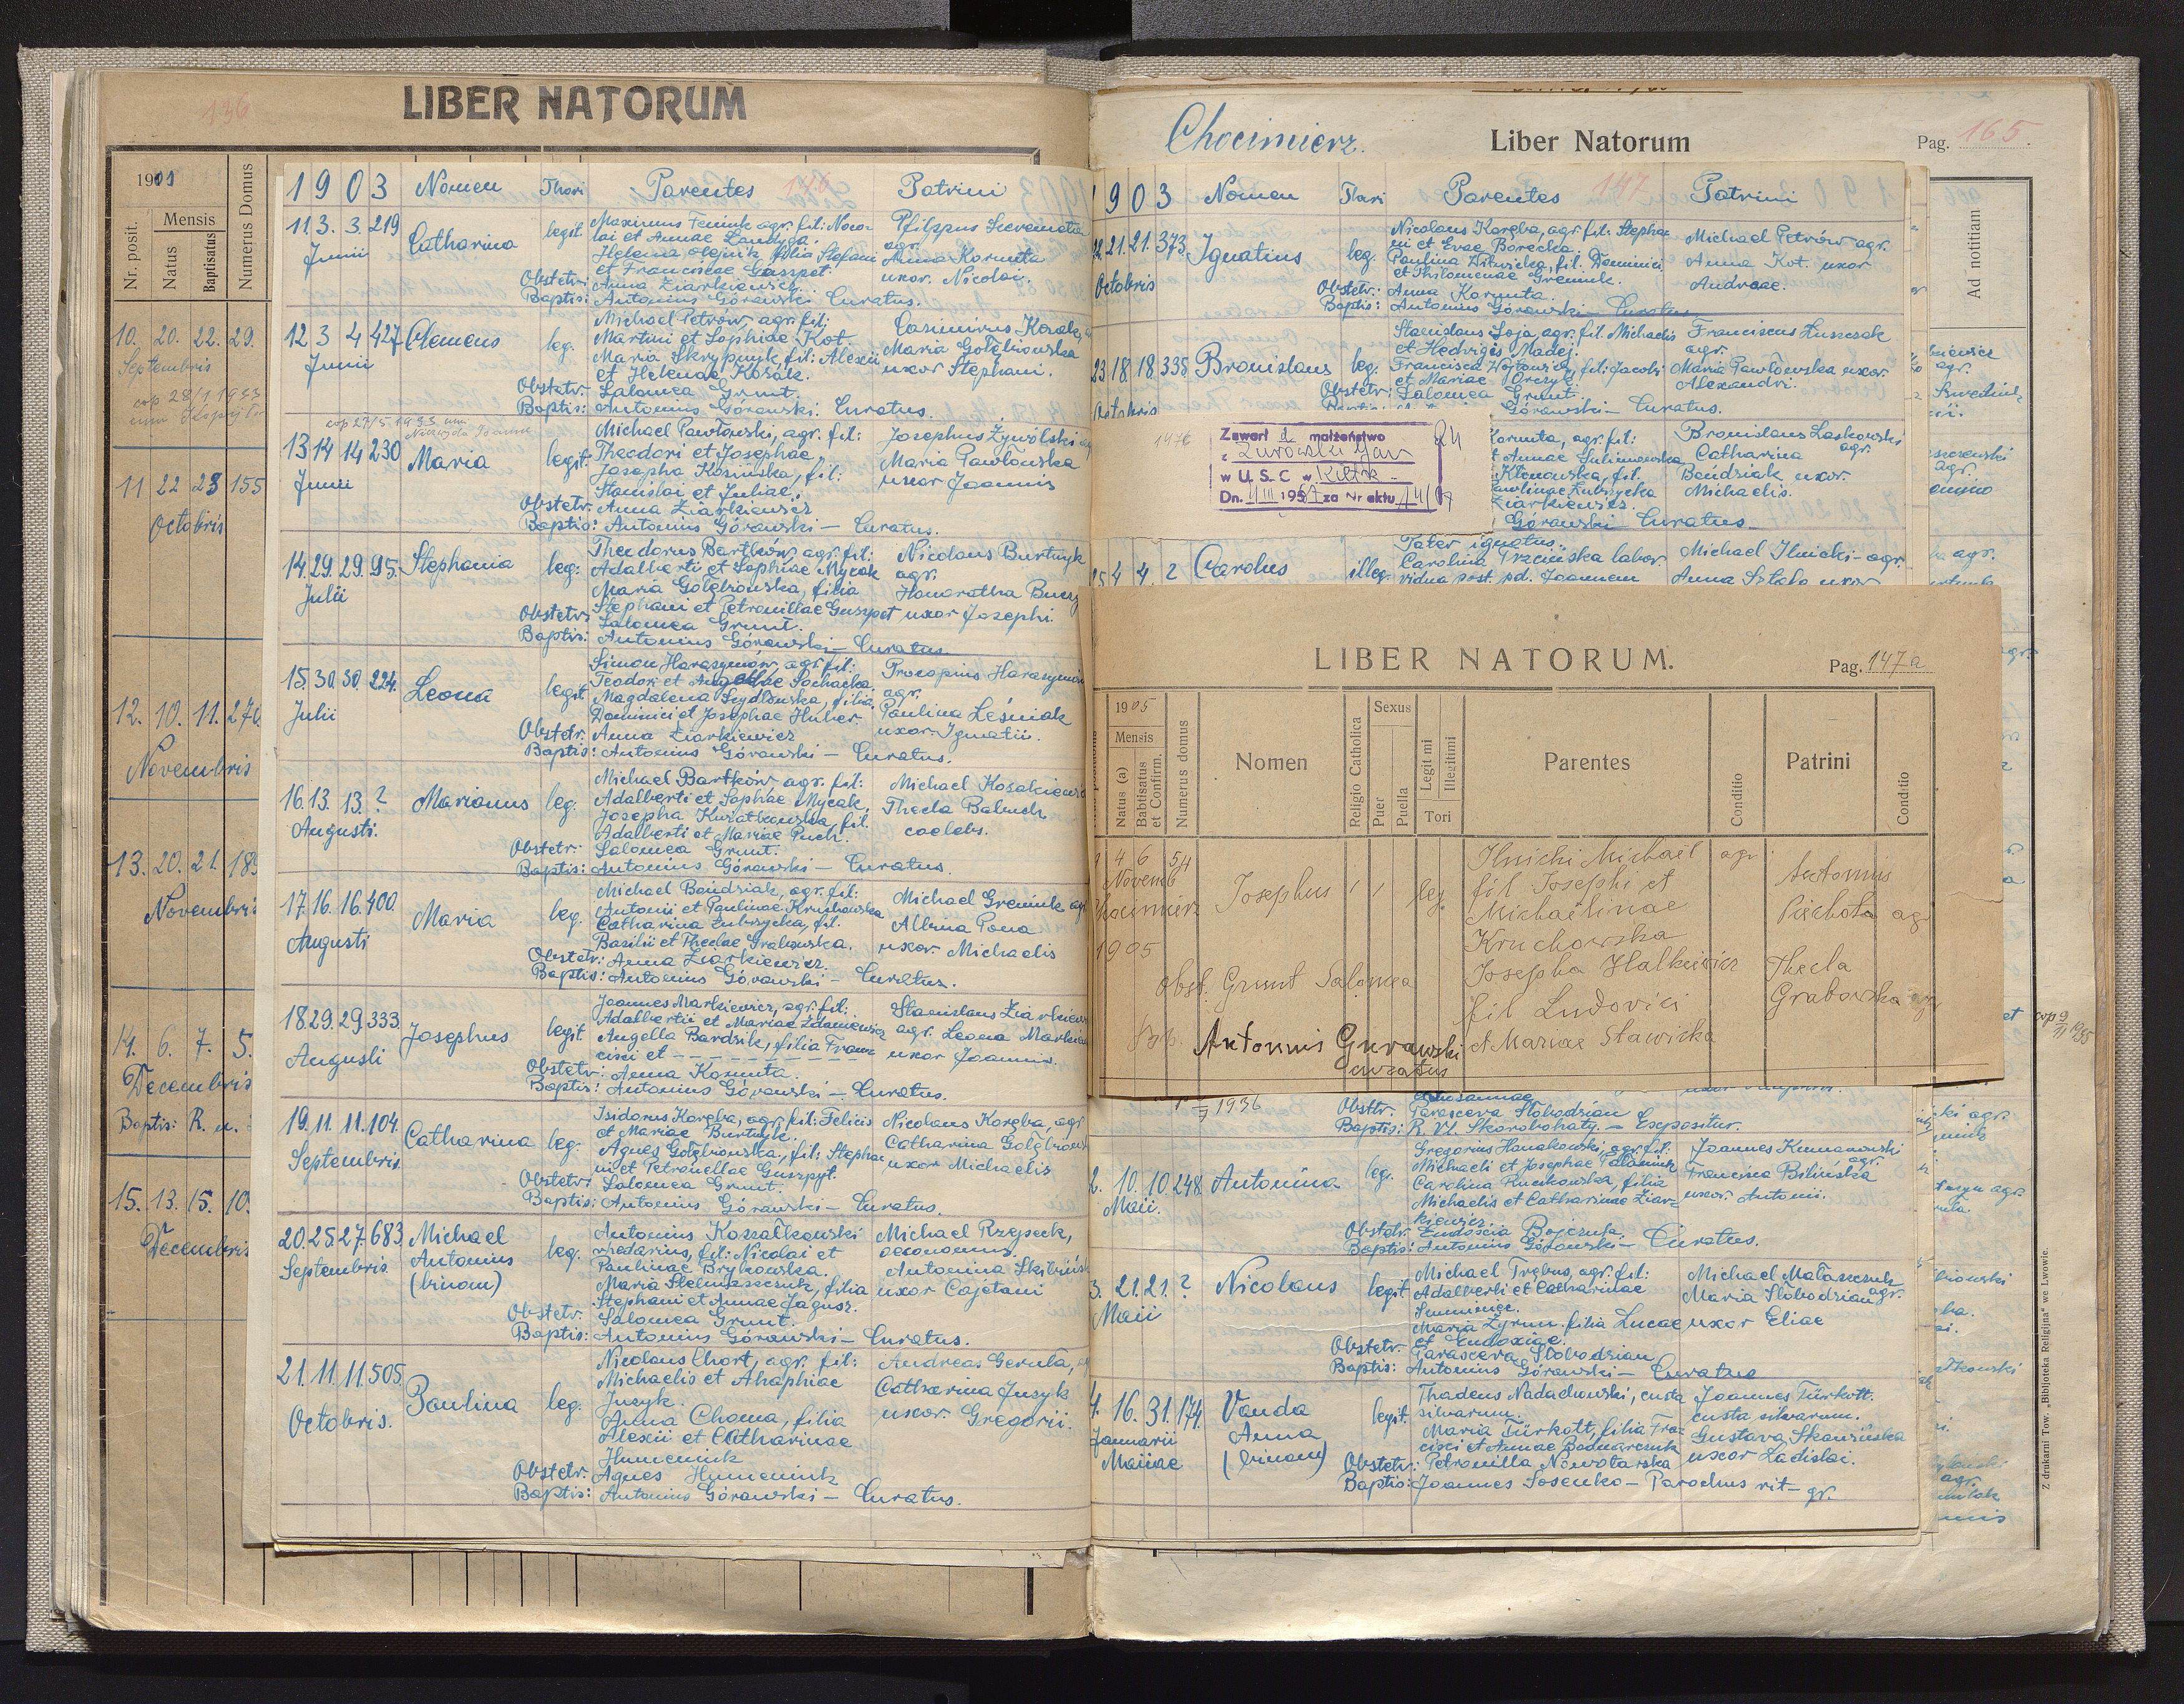 136
LIBER NATORUM
1901
Nr. posit.
Mensis
Natus
Baptisatus
Numerus Domus
10. 20. 22. 29.
Septembris
cop 28/1 1933
cum
11 22 23 155
Octobris
12. 10. 11. 276
Novembris
13. 20. 21. 189
Novembris
14. 6. 7. 5.
Decembris
Baptis: R. u.
15. 13. 15. 10
Decembris
1903 Nomen Thori Parentes 146 Patrini
11 3. 3. 219 Catharina legit.
Junii
agr. fil: Nico-
lai et Annae Landyga.
Helena Olejnik filia Stefani
et Franciscae Gaszpet.
agr.
Anna Kornuta
uxor. Nicolai.
Obstetr: Anna Ziarkiewicz.
Baptis: Antonius Górawski Curatus.
12 3 4 427 Clemens leg.
Junii
Michael Petrów, agr. fil:
Martini et Sophiae Kot.
Maria Skrypnyk fil: Alexii
et Helenae Kosak.
Casimirus Kozak,
Maria Gołębiowska
uxor Stephani.
Obstetr: Salomea Grunt.
Baptis: Antonius Górawski. Curatus.
cop 27/5 1933 cum
13 14 14 230 Maria legit.
Junii
Michael Pawłowski, agr. fil:
Theodori et Josephae,
Josepha Kosinska, fil:
Stanislai et Juliae.
Josephus Żywólski
Maria Pawłowska
uxor Joannis
Obstetr: Anna Ziarkiewicz
Baptis: Antonius Górawski — Curatus.
14. 29. 29. 95. Stephania leg:
Julii
Theodorus Bartków, agr. fil:
Adalberti et Sophiae Mycak
Maria Gołębiowska, filia
Stephani et Petronillae Guszpet
Nicolaus Burtnyk
agr.
Honoratha
uxor Josephi.
Obstetr: Salomea Grunt.
Baptis: Antonius Górawski — Curatus
15. 30. 30. 224. Leona legit
Julii
Simon Harasymów, agr. fil:
Teodori et Angellae Sochacka,
Magdalena Szydłowska, filia.
Dominici et Josephae Huber.
Procopius Harasymów
agr.
Paulina Leśniak
uxor. Ignatii.
Obstetr. Anna Ziarkiewicz
Baptis: Antonius Górawski — Curatus.
16. 13. 13. ? Marianus leg.
Augusti.
Michael Bartków agr. fil:
Adalberti et Sophiae Mycak,
Josepha Kwiatkowska, fil.
Adalberti et Mariae Puch.
Michael Kosakiewicz
Thecla Babuch
caelebs.
Obstetr: Salomea Grunt.
Baptis: Antonius Górawski — Curatus.
17. 16. 16. 400. Maria leg.
Augusti
Michael Bendziak, agr. fil:
Antonii et Paulinae Kruchowska
Catharina Zubrzycka, fil.
Basilii et Theclae Grabowska.
Michael Greniuk agr
Albina Pona
uxor. Michaelis
Obstetr: Anna Ziarkiewicz.
Baptis: Antonius Górawski — Curatus.
18. 29. 29. 333. Josephus legit
Augusti
Joannes Markiewicz, agr. fil:
Adalbertii et Mariae Zdaniewicz
Angella Bardzik, filia Fran-
cisci et - - - - - -
Stanislaus
agr. Leona
uxor Joannis.
Obstetr: Anna Kornuta.
Baptis: Antonius Górawski — Curatus.
19. 11. 11. 104. Catharina leg.
Septembris.
Isidorus Koręba, agr. fil: Felicis
et Mariae Burtnyk.
Agnes Gołębiowska, fil: Stepha-
ni et Petronellae Guszpyt.
Nicolaus Koręba, agr
Catharina
uxor Michaelis
Obstetr: Salomea Grunt.
Baptis: Antonius Górawski — Curatus.
20. 25. 27. 683. Michael
Septembris Antonius leg.
(binom)
Antonius Koszałkowski
rhedarius, fil: Nicolai et
Paulinae Brykowska.
Maria Stelmaszczuk, filia
Stephani et Annae Jagusz.
Michael Rzepecki,
oeconomus.
Antonina
uxor Cajetani
Obstetr: Salomea Grunt.
Baptis: Antonius Górawski — Curatus.
21. 11. 11. 505. Paulina leg.
Octobris.
Nicolaus Chort, agr. fil:
Michaelis et Ahaphiae
Juzyk.
Anna Choma, filia
Alexii et Catharinae
Humeniuk
Andreas Geruta,
Catharina Juzyk
uxor. Gregorii.
Obstetr: Agnes Humeniuk
Baptis: Antonius Górawski — Curatus.
Chocimierz.
Liber Natorum
Pag. 165
Ad notitiam
903 Nomen Thori Parentes 147 Patrini
22. 21. 21. 373. Ignatius leg.
Octobris
Nicolaus Koręba, agr. fil: Stepha-
ni et Evae Borecka.
Paulina Witwicka, fil. Dominici
et Philomenae Greniuk.
Michael Petrów agr.
Anna Kot. uxor
Andreae.
Obstetr: Anna Kornuta.
Baptis: Antonius Górawski — Curatus
23. 18. 18. 335. Bronislaus leg.
Octobris
Stanislaus Soja, agr. fil. Michaelis
et Hedvigis Madej.
Francisca Wojtowicz, fil: Jacobi
et Mariae Orczyk.
Franciscus Łuszczak
agr.
Maria Pawłowska uxor.
Alexandri.
Obstetr: Salomea Grunt.
Górawski — Curatus.
1476
Zawarł a małżeństwo
z Żurowski Jan
w U. S. C w
Dn. 4/III 1957 za Nr aktu
Kornuta, agr. fil:
et Annae
Klonowska, fil.
Paulinae Zubrzycka
Ziarkiewicz.
Górawski — Curatus
Bronislaus Laskowski
agr.
Catharina
Bendziak uxor.
Michaelis.
25 4 4. 2 Carolus illeg.
Pater ignotus.
Carolina Trzcińska labor.
vidua post. pd. Joannem
Michael Ilnicki - agr.
Anna Sztabo uxor
LIBER NATORUM.
Pag. 147a
1905
Mensis
Natus (a)
Babtisatus
et Confirm.
Numerus domus
Nomen
Religio Catholica
Sexus
Puer
Puella
Legit mi
Illegitimi
Tori
Parentes
Conditio
Patrini
Conditio
1 4 6 54
Novemb
Chocimierz
1905
Josephus 1 1 leg.
Ilnicki Michael agr.
fil Josephi et
Michaëlinae
Kruchowska
Josepha Halkiewicz
fil Ludovici
et Mariae Stawicka
Antonius
Piechota agr
Thecla
Grabowska agr
Obst. Grunt Salomea
Bap. Antonius Gurawski
curatus
cop 9/II 1935
1936
Obsttr. Parasceva Słobodzian
Baptis: R. Vl. Skorobohaty. — Expositur.
2. 10. 10. 248. Antonina leg.
Maii.
Gregorius Hanakowski, agr. fil:
Michaeli et Josephae
Carolina Ruczkowska, filia
Michaelis et Catharinae Ziar-
kiewicz.
Joannes Kumanowski
agr.
Francisca Bilińska
uxor. Antoni.
Obstetr. Eudoscia Bojczuta.
Baptis: Antonius Górawski — Curatus.
3. 21. 21. ? Nicolaus legit
Maii
Michael Trębus, agr. fil:
Adalberti et Catharinae
Maria Zyrun. filia Lucae
et Eudoxiae.
Michael Małaszczuk
agr.
Maria Słobodzian
uxor Eliae
Obstetr: Parasceva Słobodzian
Baptis: Antonius Górawski — Curatus
4. 16. 31. 174. Vanda
Januarii Anna legit.
Maiiae (binom)
Thadeus Nadachowski, custos
silvarum.
Maria Türkott, filia Fra-
cisci et Annae Bednarczuk
Joannes Türkott.
custos silvarum.
Gustava Skauzińska
uxor Ladislai.
Obstetr: Petronilla Nowotarska
Baptis: Joannes Sosenko — Parochus rit — gr.
Z drukarni Tow. „Bibljoteka Religijna" we Lwowie.